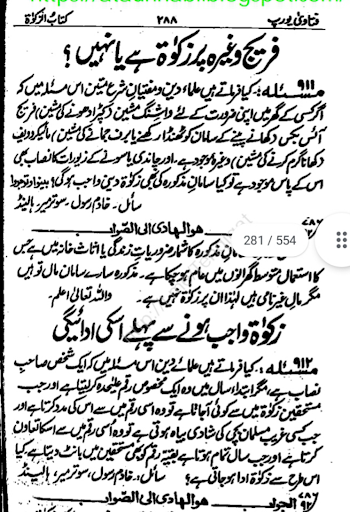 فتاویٰ یورپ ۲۸۸ کتاب الزکوٰۃ
فریج وغیرہ پر زکوٰۃ ہے یا نہیں؟
مسئلہ ۹۱۱: کیا فرماتے ہیں علماء دین و مفتیان شرع متین اس مسئلہ میں کہ
اگر کسی کے گھر میں اپنی ضرورت کے لئے واشنگ مشین (کپڑا دھونے کی مشین) فریج
آئس بکس (کھانے پینے کے سامان کو ٹھنڈا رکھنے یا برف جمانے کی مشین) مائیکرو ویف
(کھانا گرم کرنے کی مشین) وغیرہ موجود ہے، اور چاندی یا سونے کے زیورات کا نصاب بھی
اس کے پاس موجود ہے تو کیا سامان مذکورہ کی بھی زکوٰۃ دینی واجب ہوگی؟ بینوا توجروا
سائل۔ خادم رسول۔ سوترمیر، ہالینڈ
۷۸۶
۹۲ ھو الھادی الی الصواب
مذکورہ کا شمار ضروریات زندگی یا اثاث خانہ میں ہے جس
کا استعمال متوسط گھرانوں میں عام ہو چکا ہے۔ مذکورہ سارے سامان مال تو ہیں
مگر مال غیر نامی ہیں لہٰذا ان پر زکوٰۃ نہیں ہے۔ واللہ تعالیٰ اعلم۔
281 / 554
زکوٰۃ واجب ہونے سے پہلے اسکی ادائیگی
مسئلہ ۹۱۲: کیا فرماتے ہیں علمائے دین اس مسئلہ میں کہ ایک شخص صاحب
نصاب ہے، مگر ابتداء سال میں وہ ایک مخصوص رقم علیحدہ کر لیتا ہے اور جب
مستحقین زکوٰۃ میں سے کوئی آجاتا ہے تو وہ اسی رقم میں سے اس کی مدد کرتا ہے اور
جب کسی غریب مسلمان بچی کی شادی بیاہ ہوتی ہے تو وہ اسی رقم میں سے اسکا تعاون
کرتا ہے اور جب سال تمام ہوتا ہے بقیہ رقم کو بھی مستحقین میں بانٹ دیتا ہے، کیا
اس طرح سے زکوٰۃ ادا ہو جاتی ہے؟ سائل: خادم رسول، سوترمیر، ہالینڈ
۷۸۶
۹۲ الجواب ھو الھادی الی الصواب